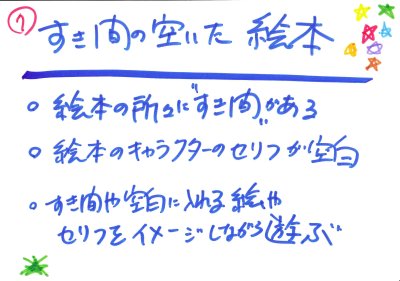 ⑦ すき間の空いた 絵本
○ 絵本の所々に"すき間"がある
○ 絵本のキャラクターのセリフが空白
○ すき間や空白に入れる絵や
セリフをイメージしながら遊ぶ